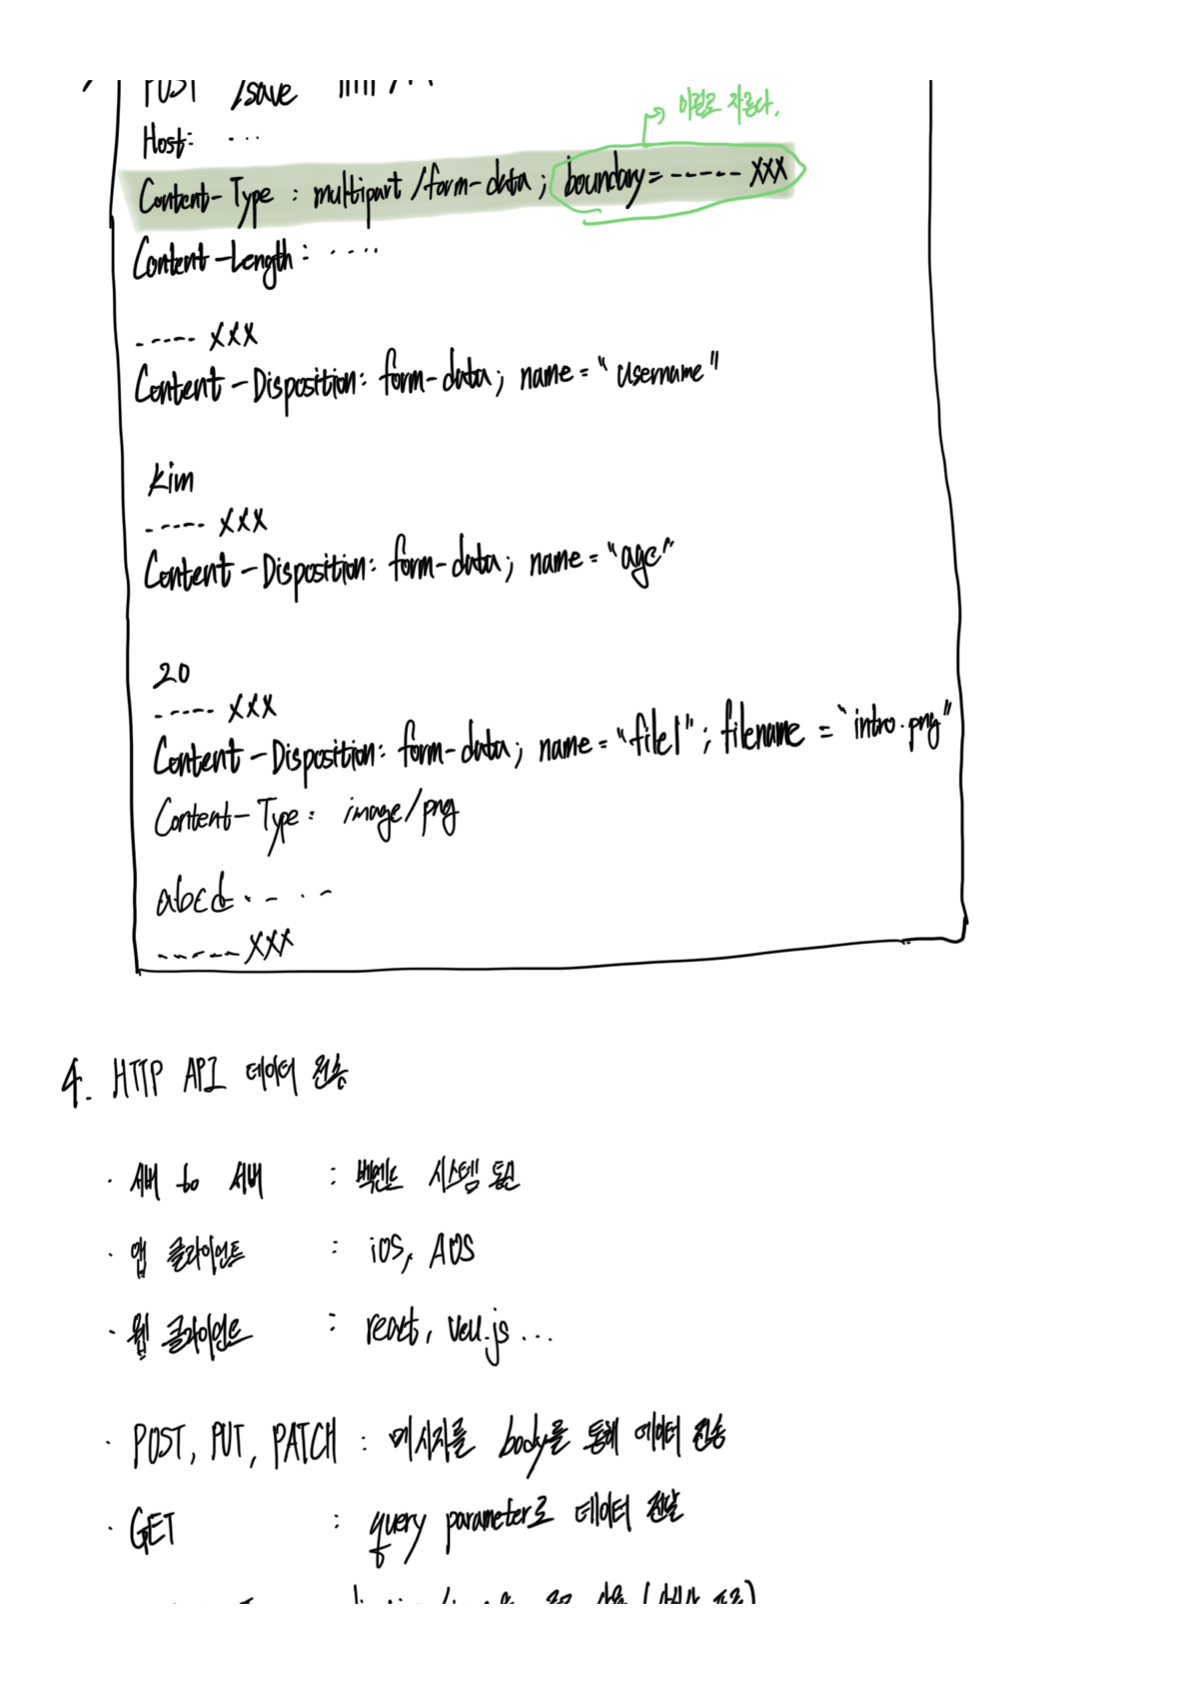 POST /save
이걸로 자른다.
Host: ...
Content-Type : multipart/form-data; boundary=-----XXX
Content-Length : ....
-----XXX
Content-Disposition: form-data; name="username"
kim
-----XXX
Content-Disposition: form-data; name="age"
20
-----XXX
Content-Disposition: form-data; name="file1"; filename="intro.png"
Content-Type: image/png
abcd....
------XXX
4. HTTP API 데이터 전송
· 서버 to 서버 : 백엔드 시스템 통신
· 앱 클라이언트 : iOS, AOS
· 웹 클라이언트 : react, veu.js ...
· POST, PUT, PATCH : 메시지를 body를 통해 데이터 전송
· GET : query parameter로 데이터 전달